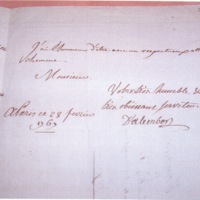 J'ai l'honneur d'être avec un respectueux
Monsieur
Votre très humble &
très obéissant serviteur
à Paris ce 28 fevrier
D'alembert